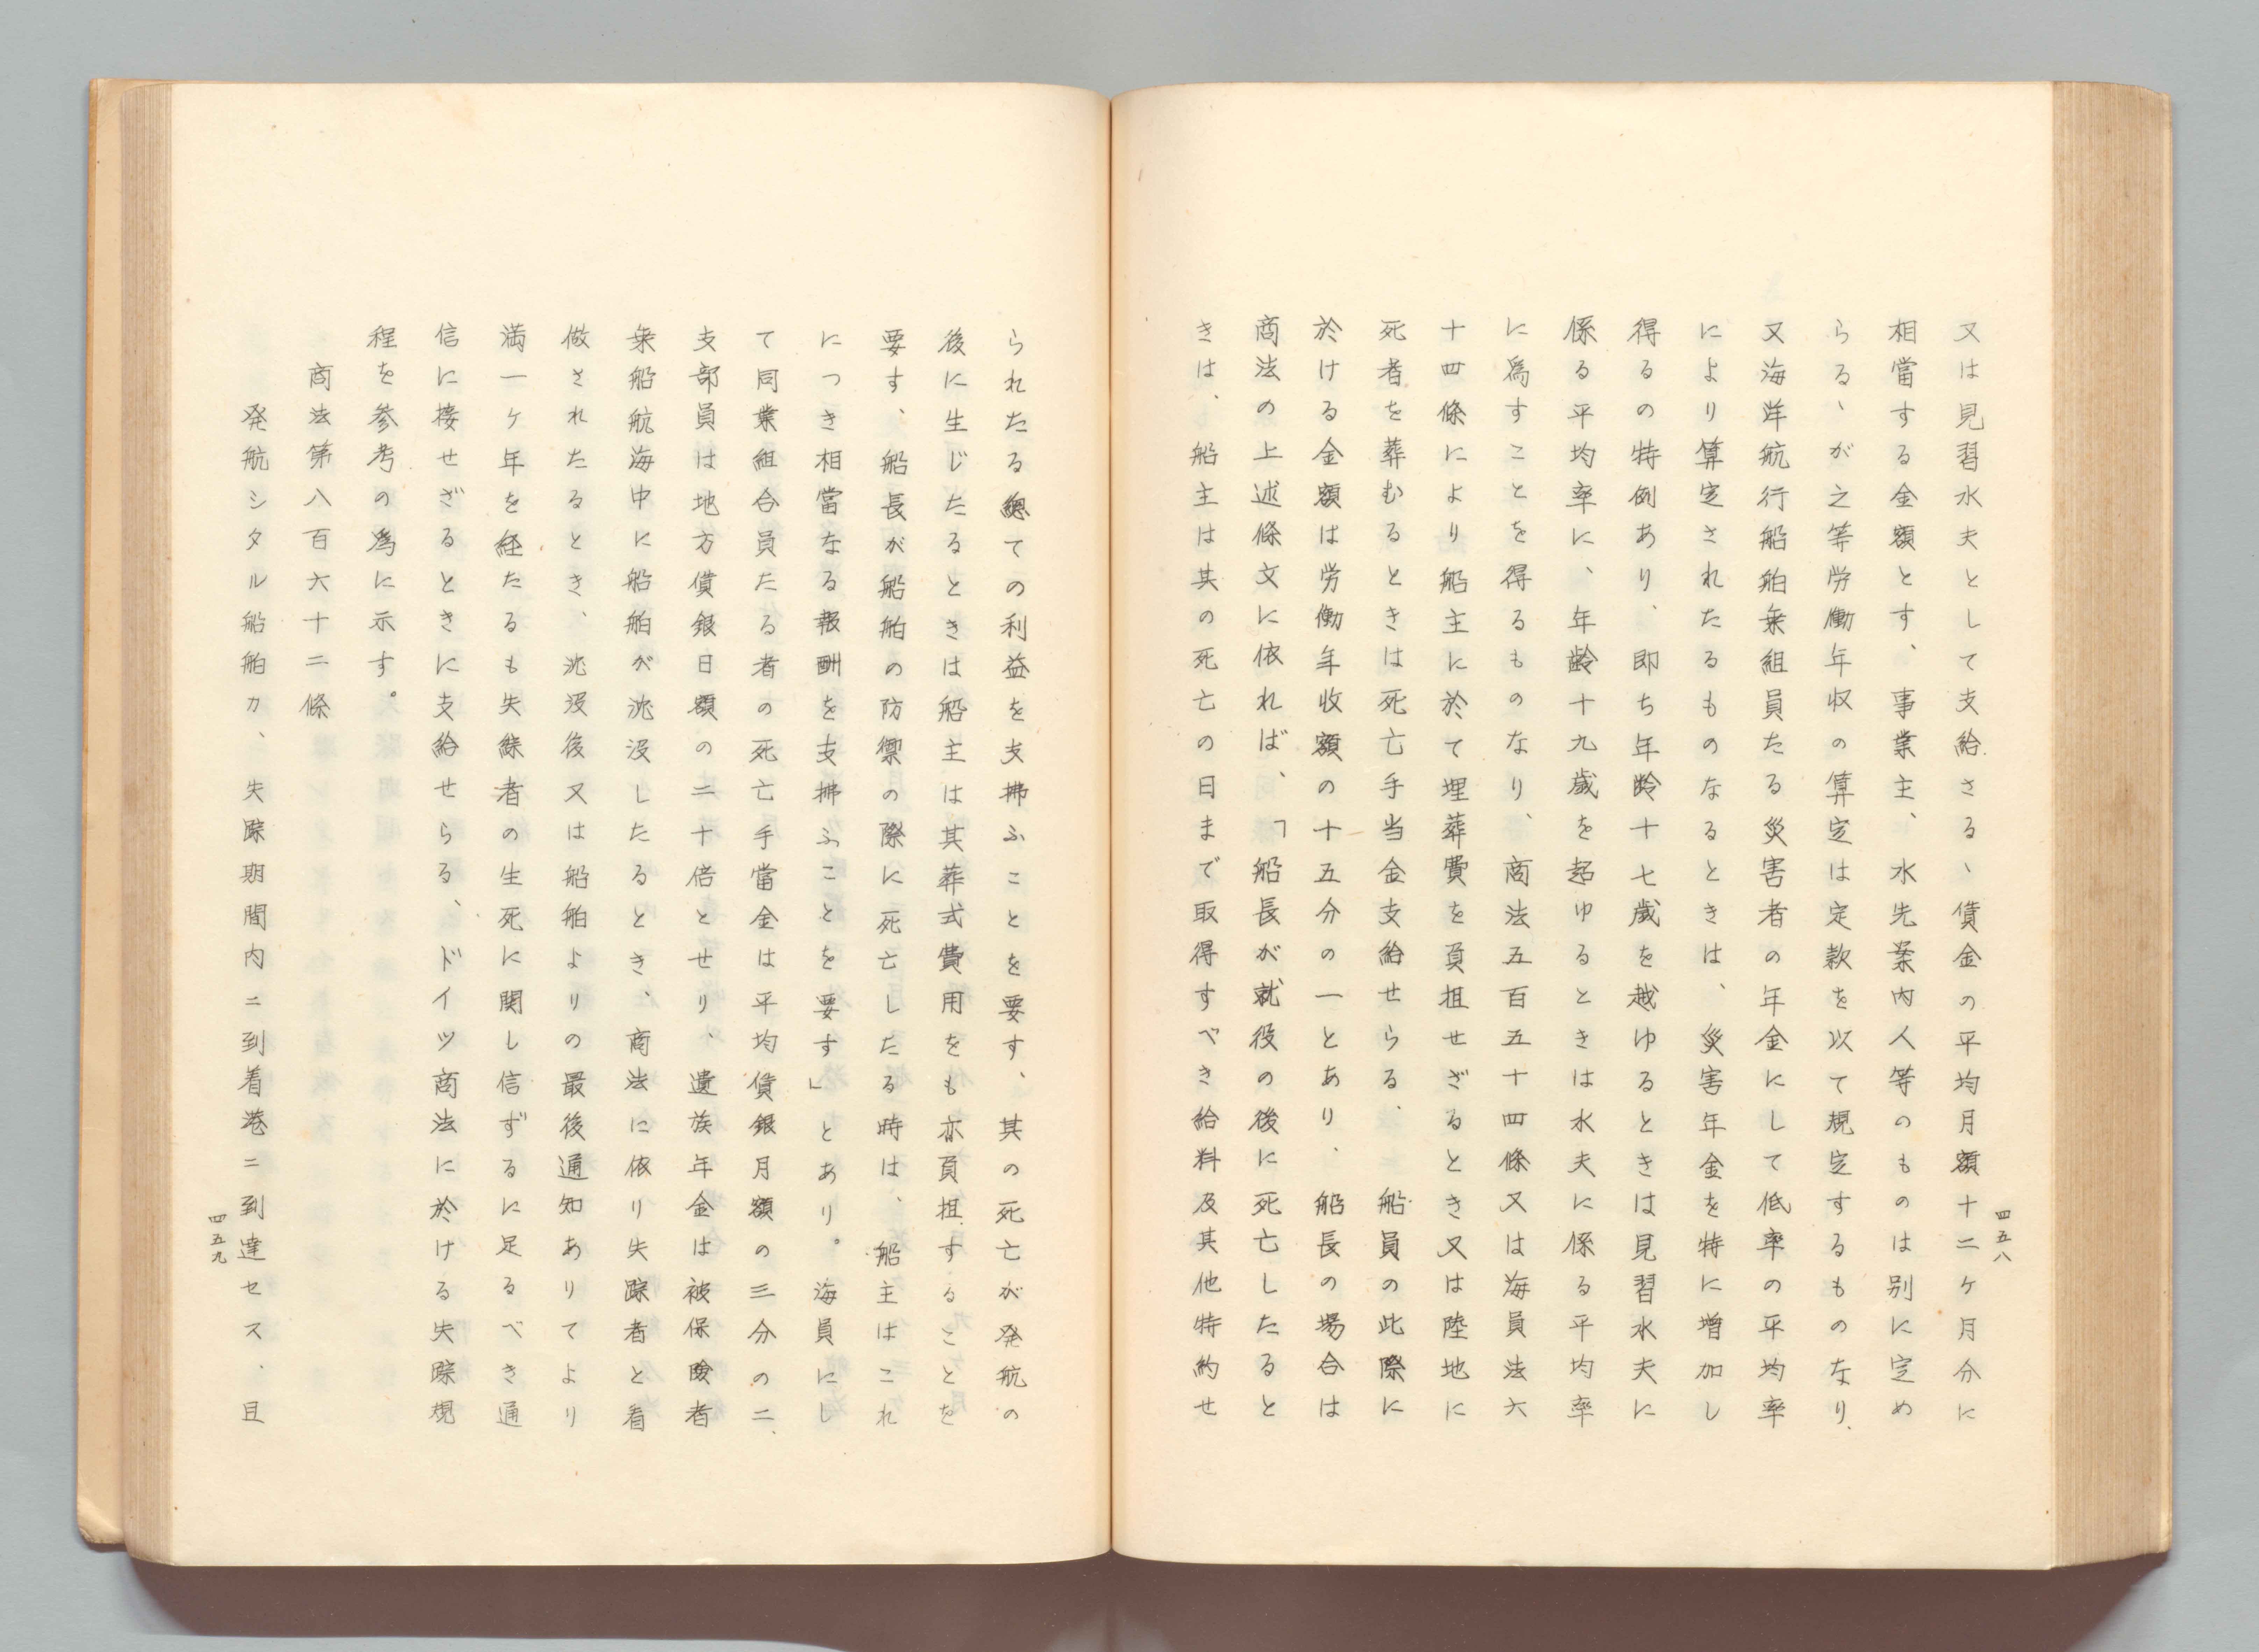 又は見習水夫として支給さるゝ賃金の平均月額十二ケ月分に
相當する金額とす、事業主、水先案内人等のものは別に定め
らるゝが之等労働年収の算定は定款を以て規定するものなり、
又海洋航行船舶乗組員たる災害者の年金にして低率の平均率
により算定されたるものなるときは、災害年金を特に増加し
得るの特例あり、即ち年齢十七歳を越ゆるときは見習水夫に
係る平均率に、年齢十九歳を超ゆるときは水夫に係る平均率
に爲すことを得るものなり、商法五百五十四條又は海員法六
十四條により船主に於て埋葬費を負担せざるとき又は陸地に
死者を葬むるときは死亡手当金支給せらる、船員の此際に
於ける金額は労働年收額の十五分の一とあり、船長の場合は
商法の上述條文に依れば、「船長が就役の後に死亡したると
きは、船主は其の死亡の日まで取得すべき給料及其他特約せ
四五八
られたる總ての利益を支拂ふことを要す、其の死亡が発航の
後に生じたるときは船主は其葬式費用をも亦負担することを
要す、船長が船舶の防禦の際に死亡したる時は、船主はこれ
につき相當なる報酬を支拂ふことを要す」とあり。海員にし
て同業組合員たる者の死亡手當金は平均賃銀月額の三分の二、
支部員は地方賃銀日額の二十倍とせり、遺族年金は被保険者
乗船航海中に船舶が沈没したるとき、商法に依り失踪者と看
做されたるとき、沈没後又は船舶よりの最後通知ありてより
満一ケ年を経たるも失踪者の生死に関し信ずるに足るべき通
信に接せざるときに支給せらる、ドイツ商法に於ける失踪規
程を参考の爲に示す。
商法第八百六十二條
発航シタル船舶カ、失踪期間内ニ到着港ニ到達セス、且
四五九